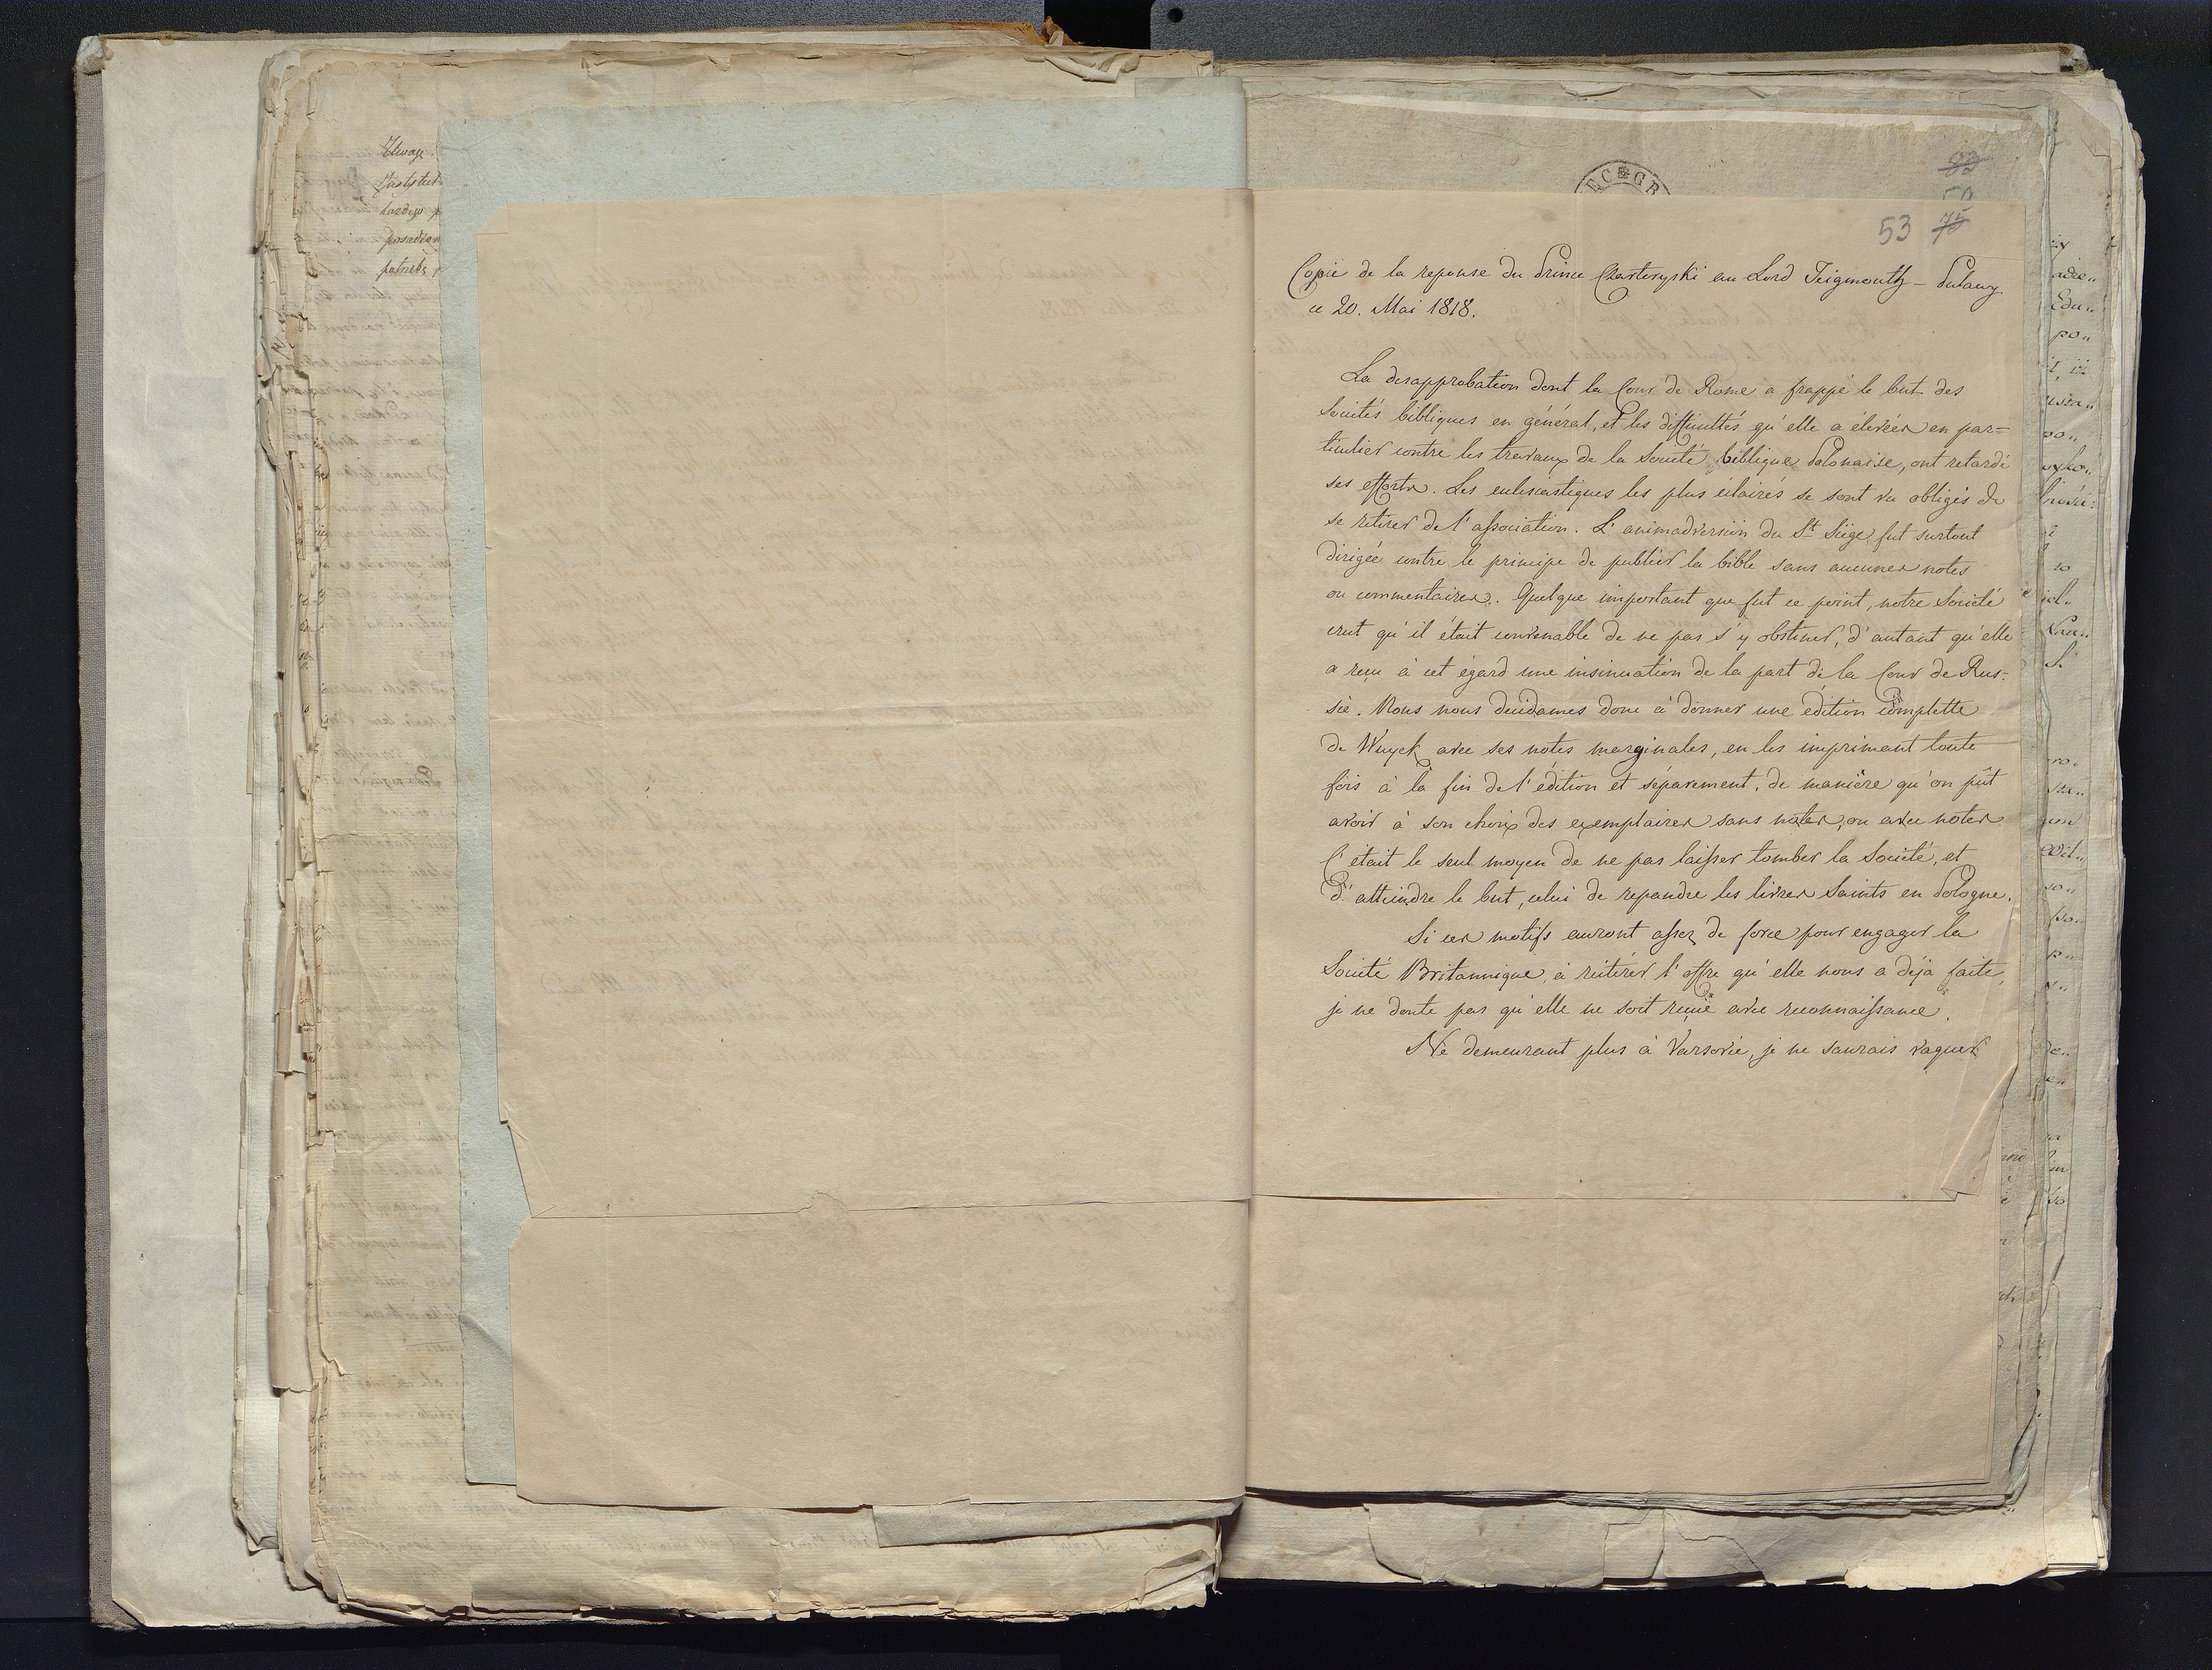 53 75
Copie de la reponse du Prince Czartoryski au Lord Teigmouth – Pulawy
ce 20. Mai 1818.
La desapprobation dont la Cour de Rome a frappé le but des
Societés bibliques en général, et les difficultés qu'elle a élevées en par=
ticulier contre les travaux de la Societé biblique Polonaise, ont retardé
ses efforts. Les eclesiastiques les plus éclairés se sont vu obligés de
se retirer de l'association. L'animadversion du St Siège fut surtout
dirigée contre le principe de publier la bible sans aucunes notes
ou commentaires. Quelque important que fut ce point, notre Societé
crut qu'il était convenable de ne pas s'y obstiner, d'autant qu'elle
a reçu à cet égard une insinuation de la part de la Cour de Rus=
sie. Nous nous decidames donc à donner une édition complette
de Wuyek avec ses notes marginales, en les imprimant toute
fois à la fin de l'édition et séparement, de manière qu'on pût
avoir à son choix des exemplaires sans notes, ou avec notes
C'était le seul moyen de ne pas laisser tomber la Societé, et
d'atteindre le but, celui de repandre les livres Saints en Pologne.
Si ces motifs auront assez de force pour engager la
Societé Britannique, à réiterer l'offre qu'elle nous a déja faite,
je ne doute pas qu'elle ne soit reçue avec reconnaissance.
Ne demeurant plus à Varsovie, je ne saurais vaquer